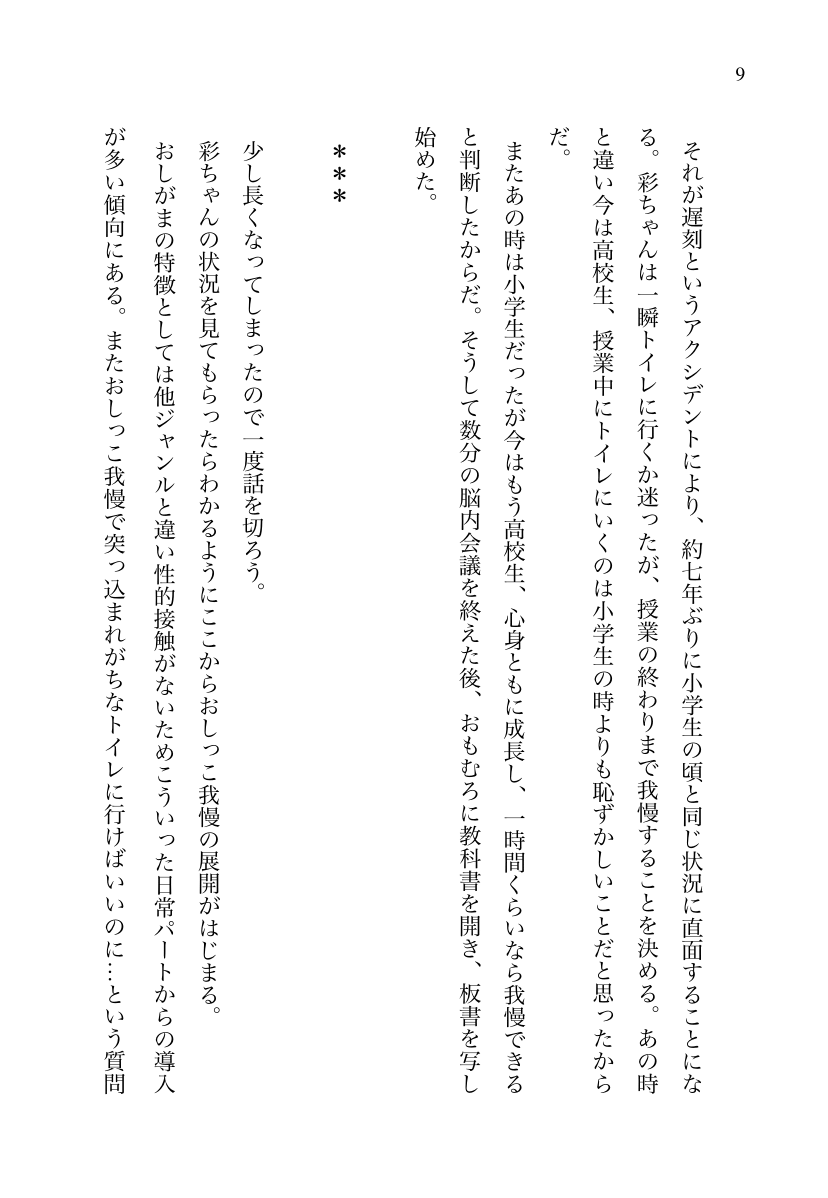 9
それが遅刻というアクシデントにより、約七年ぶりに小学生の頃と同じ状況に直面することにな
る。彩ちゃんは一瞬トイレに行くか迷ったが、授業の終わりまで我慢することを決める。あの時
と違い今は高校生、授業中にトイレにいくのは小学生の時よりも恥ずかしいことだと思ったから
だ。
またあの時は小学生だったが今はもう高校生、心身ともに成長し、一時間くらいなら我慢できる
と判断したからだ。そうして数分の脳内会議を終えた後、おもむろに教科書を開き、板書を写し
始めた。
＊＊＊
少し長くなってしまったので一度話を切ろう。
彩ちゃんの状況を見てもらったらわかるようにここからおしっこ我慢の展開がはじまる。
おしがまの特徴としては他ジャンルと違い性的接触がないためこういった日常パートからの導入
が多い傾向にある。またおしっこ我慢で突っ込まれがちなトイレに行けばいいのに…という質問